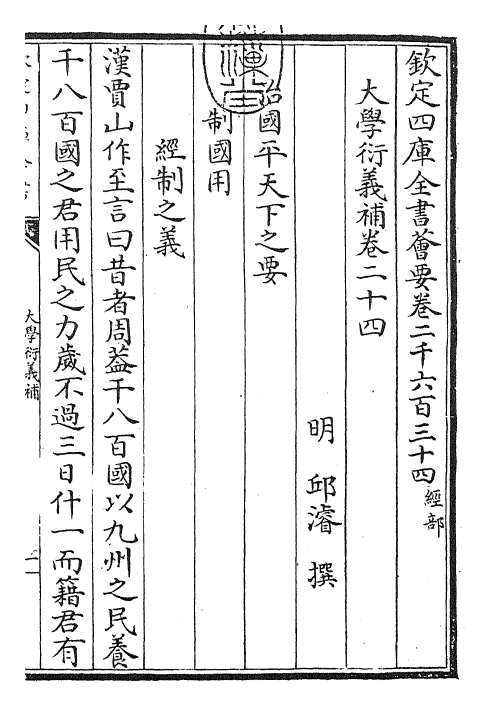 欽定四庫全書薈要卷二千六百三十四經部
大學衍義補卷二十四
明 邱濬 撰
治國平天下之要
制國用
經制之義
漢賈山作至言曰昔者周葢千八百國以九州之民養
千八百國之君用民之力歲不過三日什一而籍君有
大學衍義補